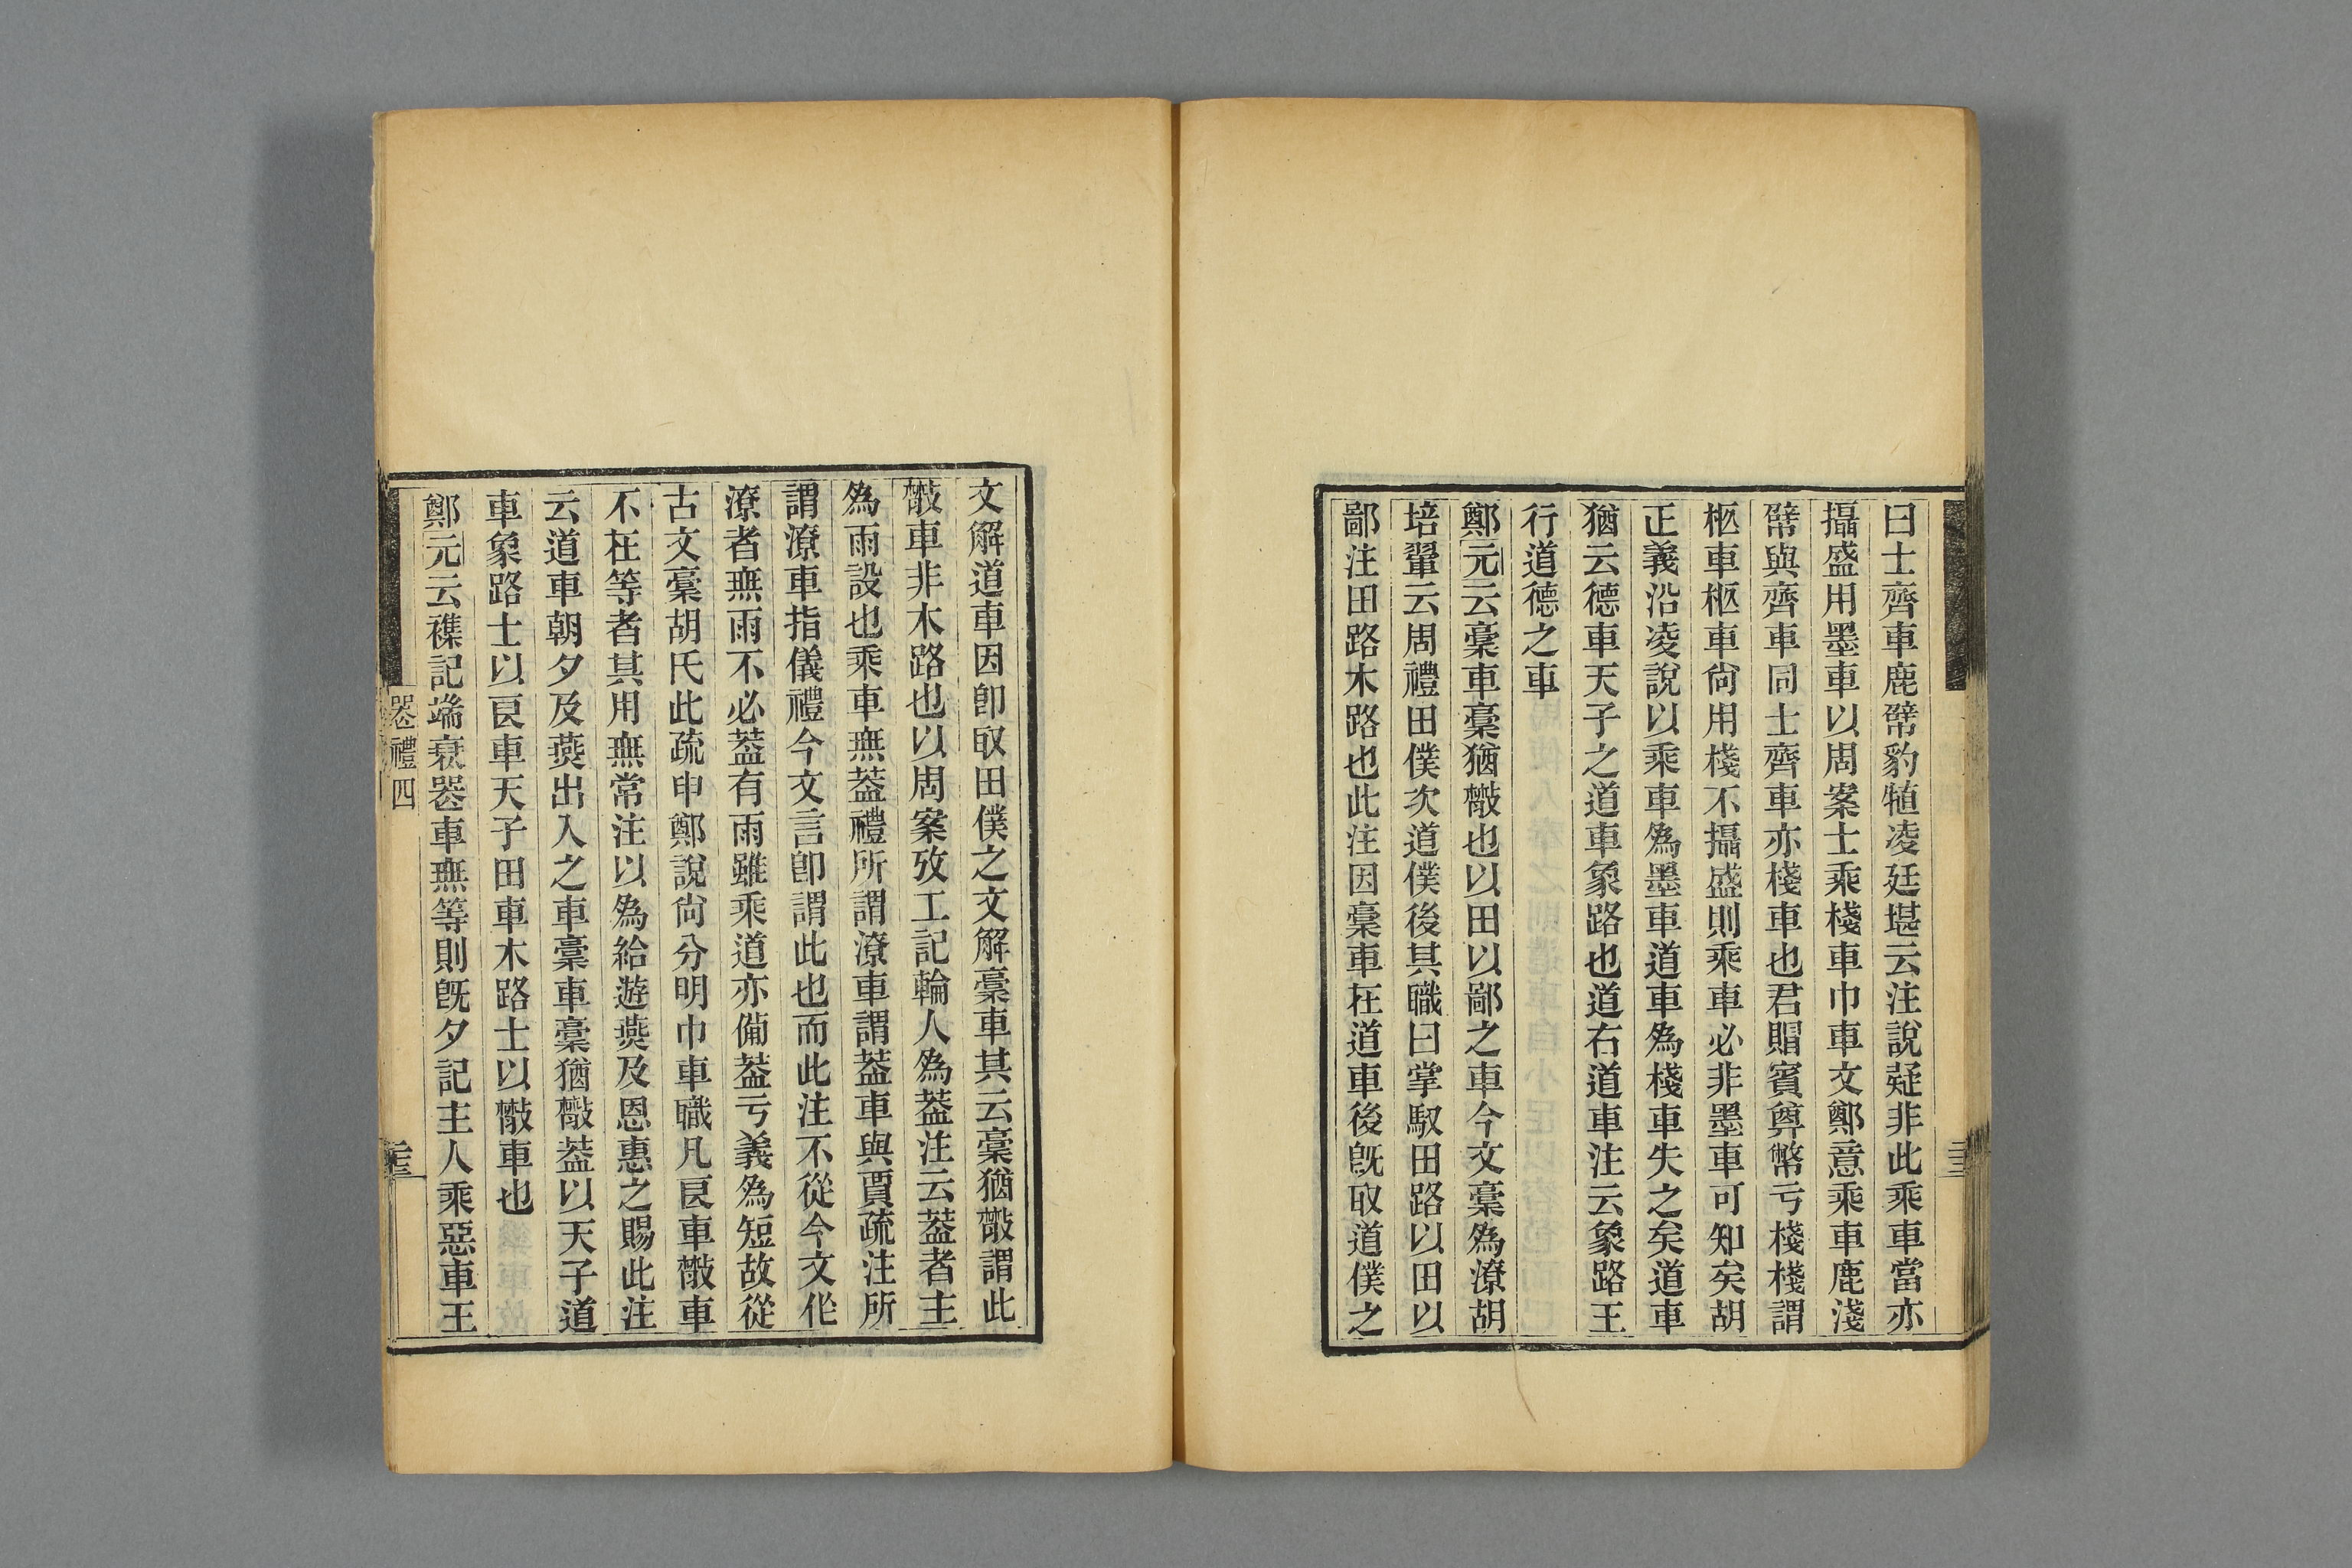 曰士齊車鹿幦豹犆凌廷堪云注說疑非此乘車當亦
攝盛用墨車以周案士乘棧車巾車文鄭意乘車鹿淺
幦與齊車同士齊車亦棧車也君賵賓奠幣亏棧棧謂
柩車柩車尙用棧不攝盛則乘車必非墨車可知矣胡
正義沿凌說以乘車爲墨車道車爲棧車失之矣道車
猶云德車天子之道車象路也道右道車注云象路王
行道德之車
鄭元云稾車稾猶散也以田以鄙之車今文稾爲潦胡
培翬云周禮田僕次道僕後其職曰掌馭田路以田以
鄙注田路木路也此注因稾車在道車後旣取道僕之
文解道車因卽取田僕之文解稾車其云稾猶散謂此
散車非木路也以周案攷工記輪人爲葢注云葢者主
爲雨設也乘車無葢禮所謂潦車謂葢車與賈疏注所
謂潦車指儀禮今文言卽謂此也而此注不從今文作
潦者無雨不必葢有雨雖乘道亦備葢亏義爲短故從
古文稾胡氏此疏申鄭說尙分明巾車職凡良車散車
不在等者其用無常注以爲給遊燕及恩惠之賜此注
云道車朝夕及燕出入之車稾車稾猶散葢以天子道
車象路士以良車天子田車木路士以散車也
鄭元云襍記端衰喪車無等則旣夕記主人乘惡車王
喪禮四
三三